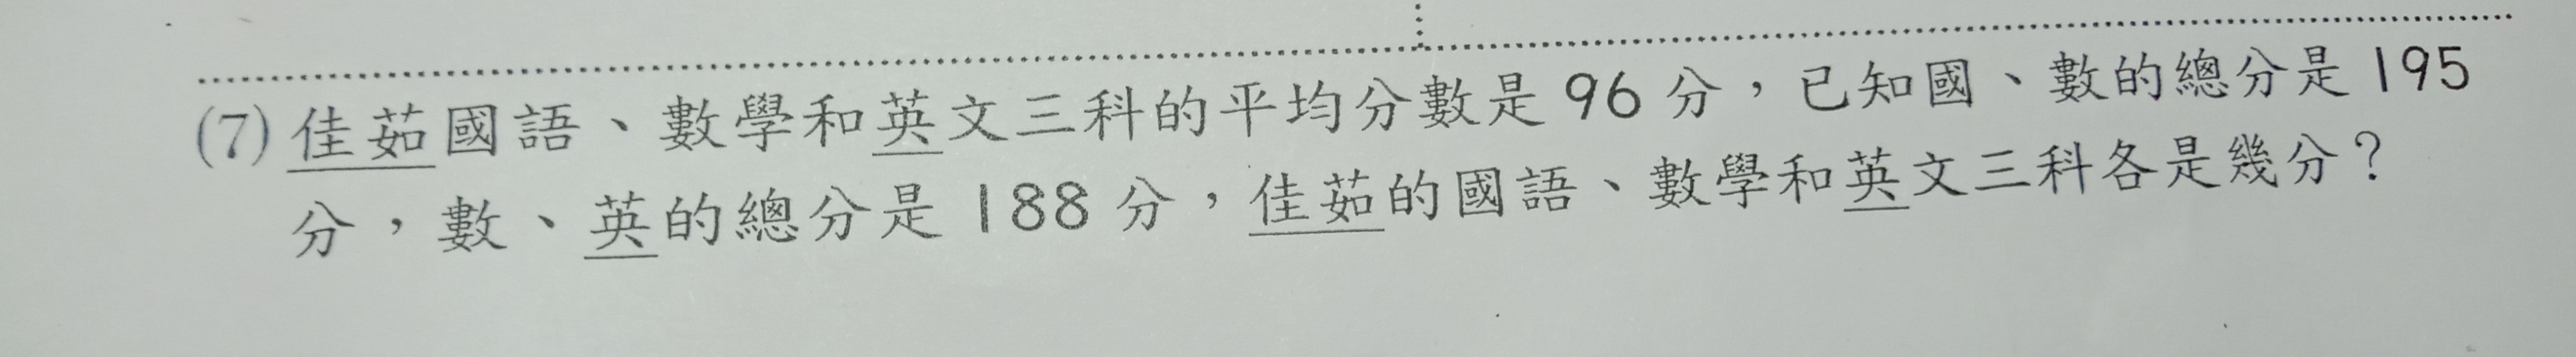 (7) 佳茹國語、數學和英文三科的平均分數是96分，已知國、數的總分是195
分，數、英的總分是188分，佳茹的國語、數學和英文三科各是幾分？